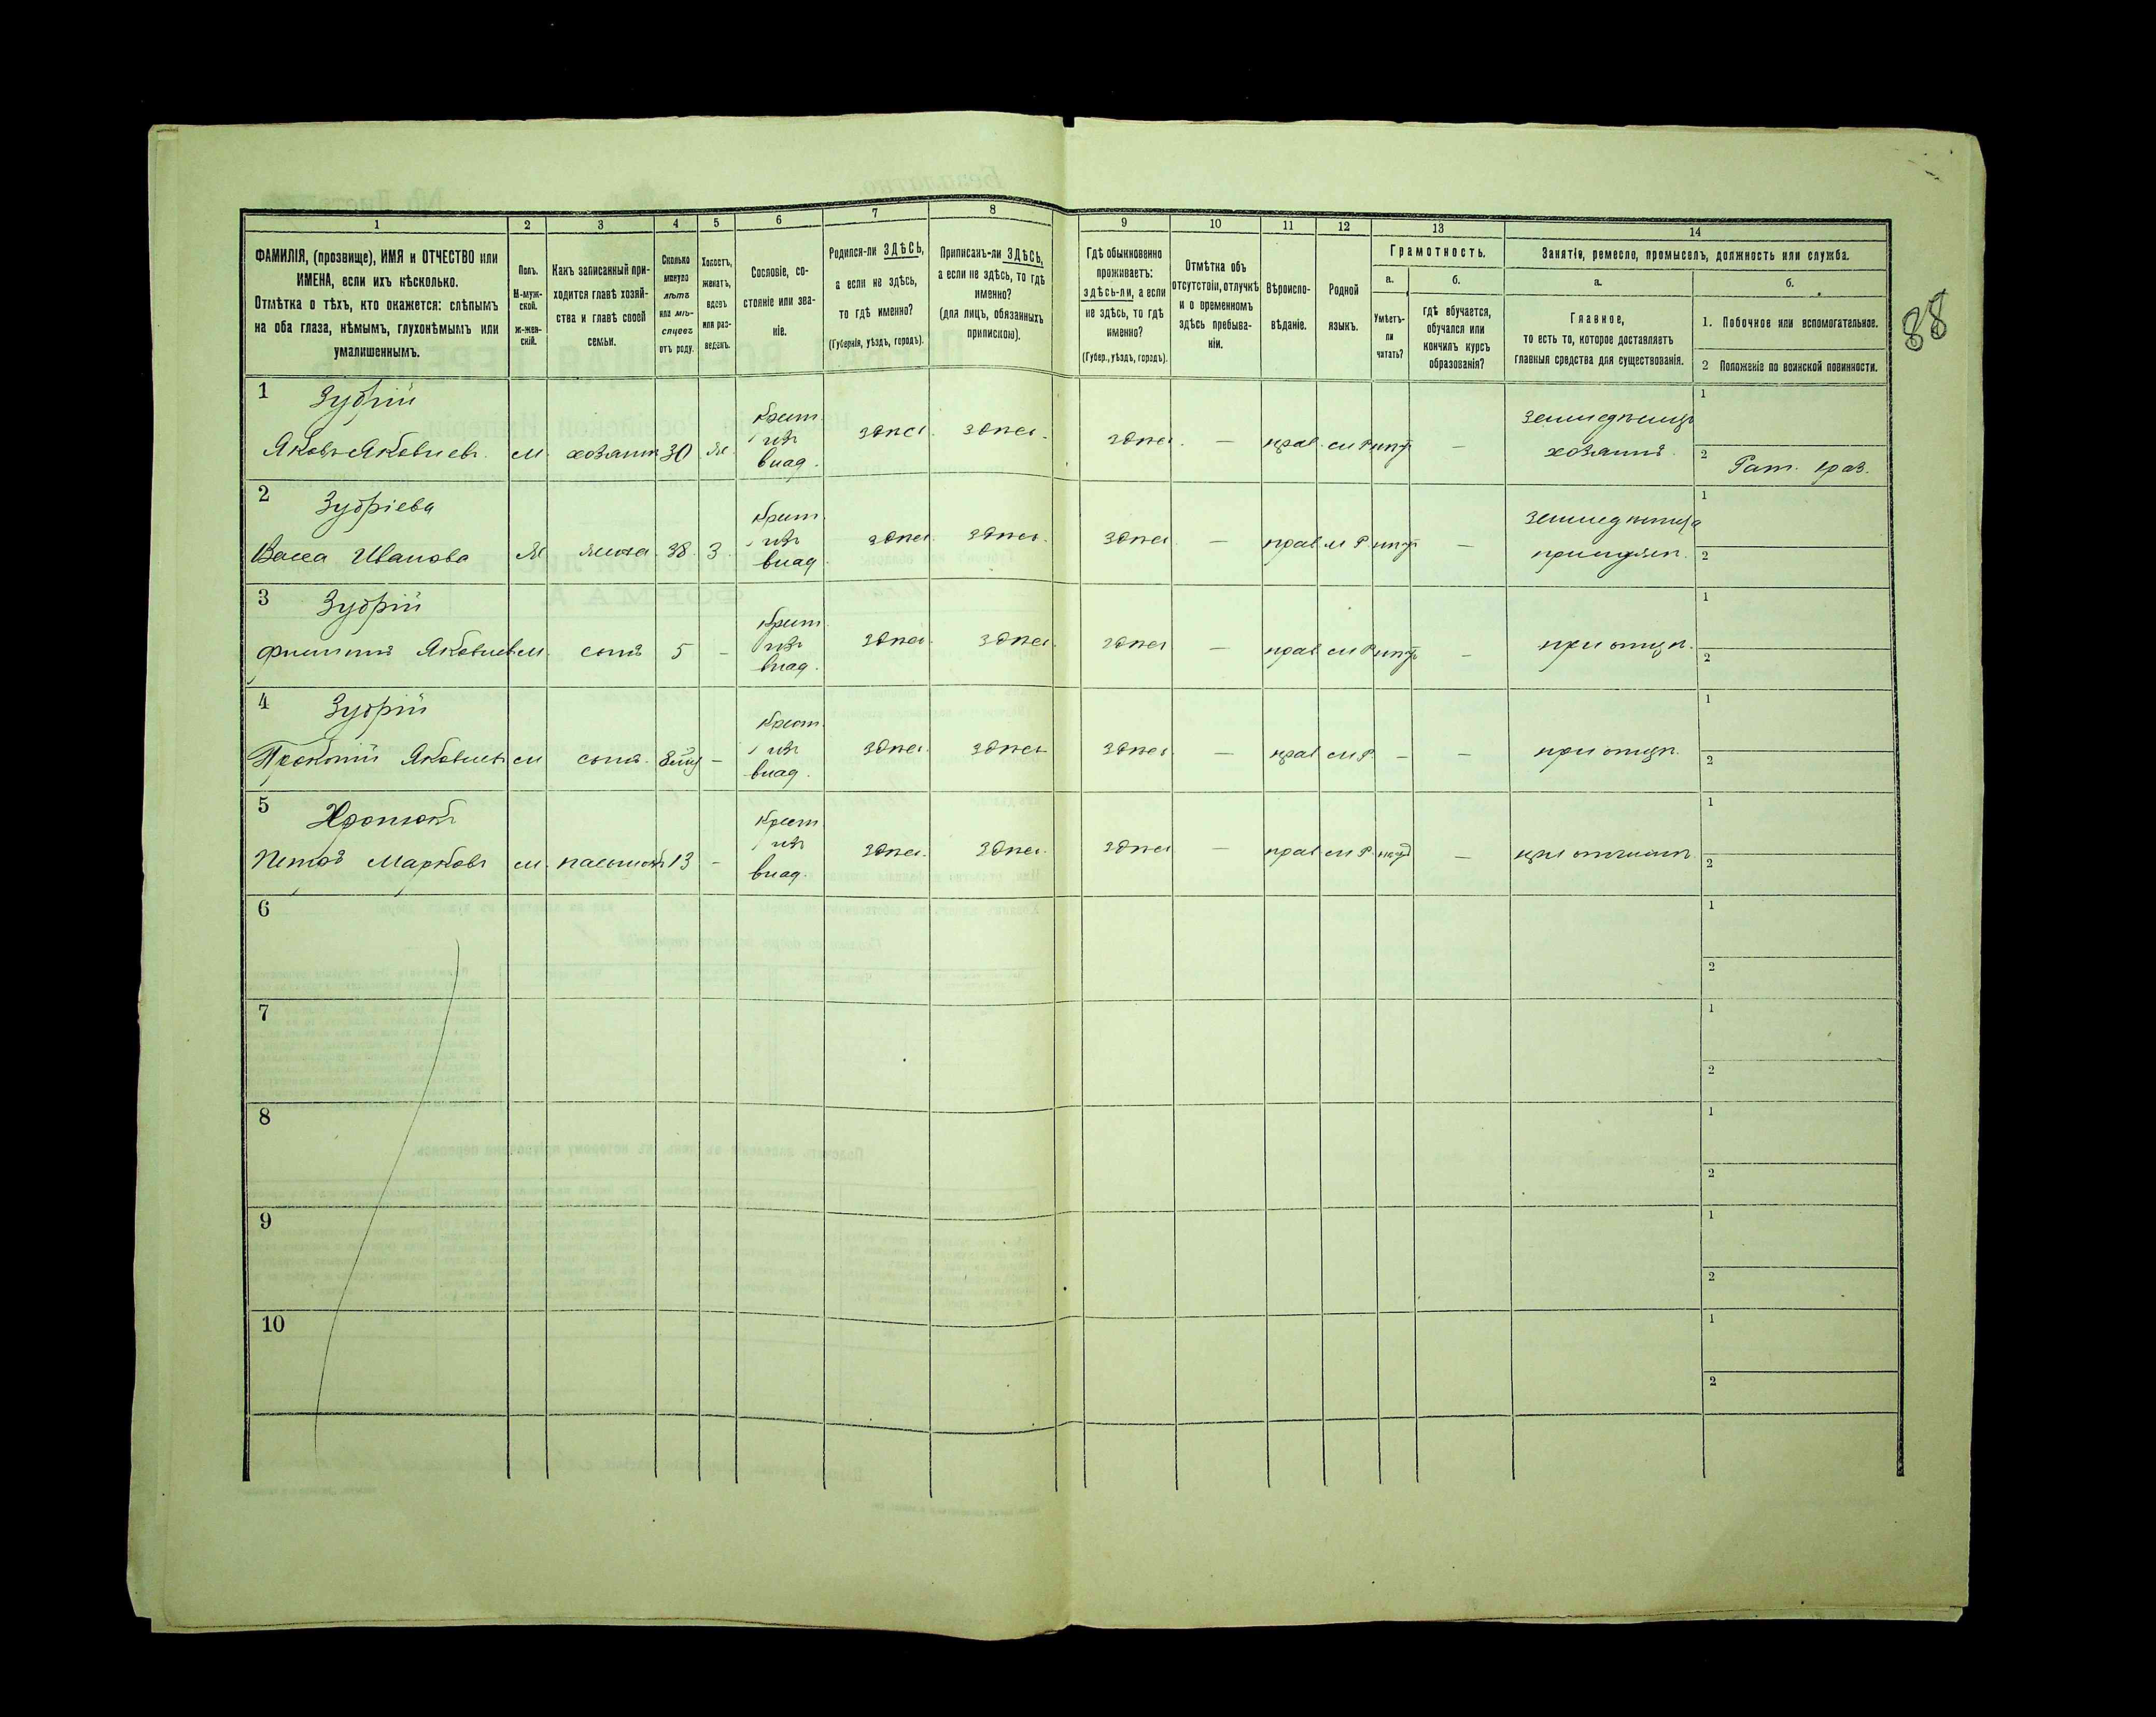 88
1 2 3 4 5 6 7 8 9 10 11 12 13 14
ФАМИЛІЯ, (прозвище), ИМЯ и ОТЧЕСТВО или
ИМЕНА, если ихъ нѣсколько.
Отмѣтка о тѣхъ, кто окажется: слѣпымъ
на оба глаза, нѣмымъ, глухонѣмымъ или
умалишеннымъ.
Полъ.
М-муж-
ской.
ж-жен-
скій.
Какъ записанный при-
ходится главѣ хозяй-
ства и главѣ своей
семьи.
Сколько
минуло
лѣтъ
или мѣ-
сяцевъ
отъ роду.
Холостъ,
женатъ,
вдовъ
или раз-
веденъ.
Сословіе, со-
стояніе или зва-
ніе.
Родился-ли ЗДѢСЬ,
а если не здѣсь,
то гдѣ именно?
(Губернія, уѣздъ, городъ).
Приписанъ-ли ЗДѢСЬ,
а если не здѣсь, то гдѣ
именно?
(для лицъ, обязанныхъ
припискою).
Гдѣ обыкновенно
проживаетъ:
здѣсь-ли, а если
не здѣсь, то гдѣ
именно?
(Губер., уѣздъ, городъ).
Отмѣтка объ
отсутствіи, отлучкѣ
и о временномъ
здѣсь пребыва-
ніи.
Вѣроиспо-
вѣданіе.
Родной
языкъ.
Грамотность.
а.
Умѣетъ-
ли
читать?
б.
гдѣ обучается,
обучался или
кончилъ курсъ
образованія?
Занятіе, ремесло, промыселъ, должность или служба.
а.
Главное,
то есть то, которое доставляетъ
главныя средства для существованія.
б.
1. Побочное или вспомогательное.
2 Положеніе по воинской повинности.
1 Зубрій
Яковъ Яковлевъ. м. хозяинъ 30 ж.
Крест.
изъ
влад.
здѣсь. здѣсь. здѣсь. — прав. м Р. нѣтъ —
земледѣлецъ
хозяинъ.
1
2 Рат. 1 раз.
2 Зубріева
Васса Иванова ж жена 38. З.
Крест.
изъ
влад.
здѣсь. здѣсь. здѣсь — прав м Р. нѣтъ —
1
2
3 Зубрій
Филиппъ Яковлевъ м. сынъ 5 —
Крест.
изъ
влад.
здѣсь. здѣсь. здѣсь — прав м Р нѣтъ — при отцѣ.
1
2
4 Зубрій
Прокопій Яковлевъ м сынъ. —
Крест.
изъ
влад.
здѣсь. здѣсь здѣсь. — прав м Р. — — при отцѣ.
1
2
5
Петръ Марковъ м. пасынокъ 13 —
Крест.
изъ
влад.
здѣсь. здѣсь. здѣсь — прав м Р. — при отчимѣ.
1
2
6
1
2
7
1
2
8
1
2
9
1
2
10
1
2